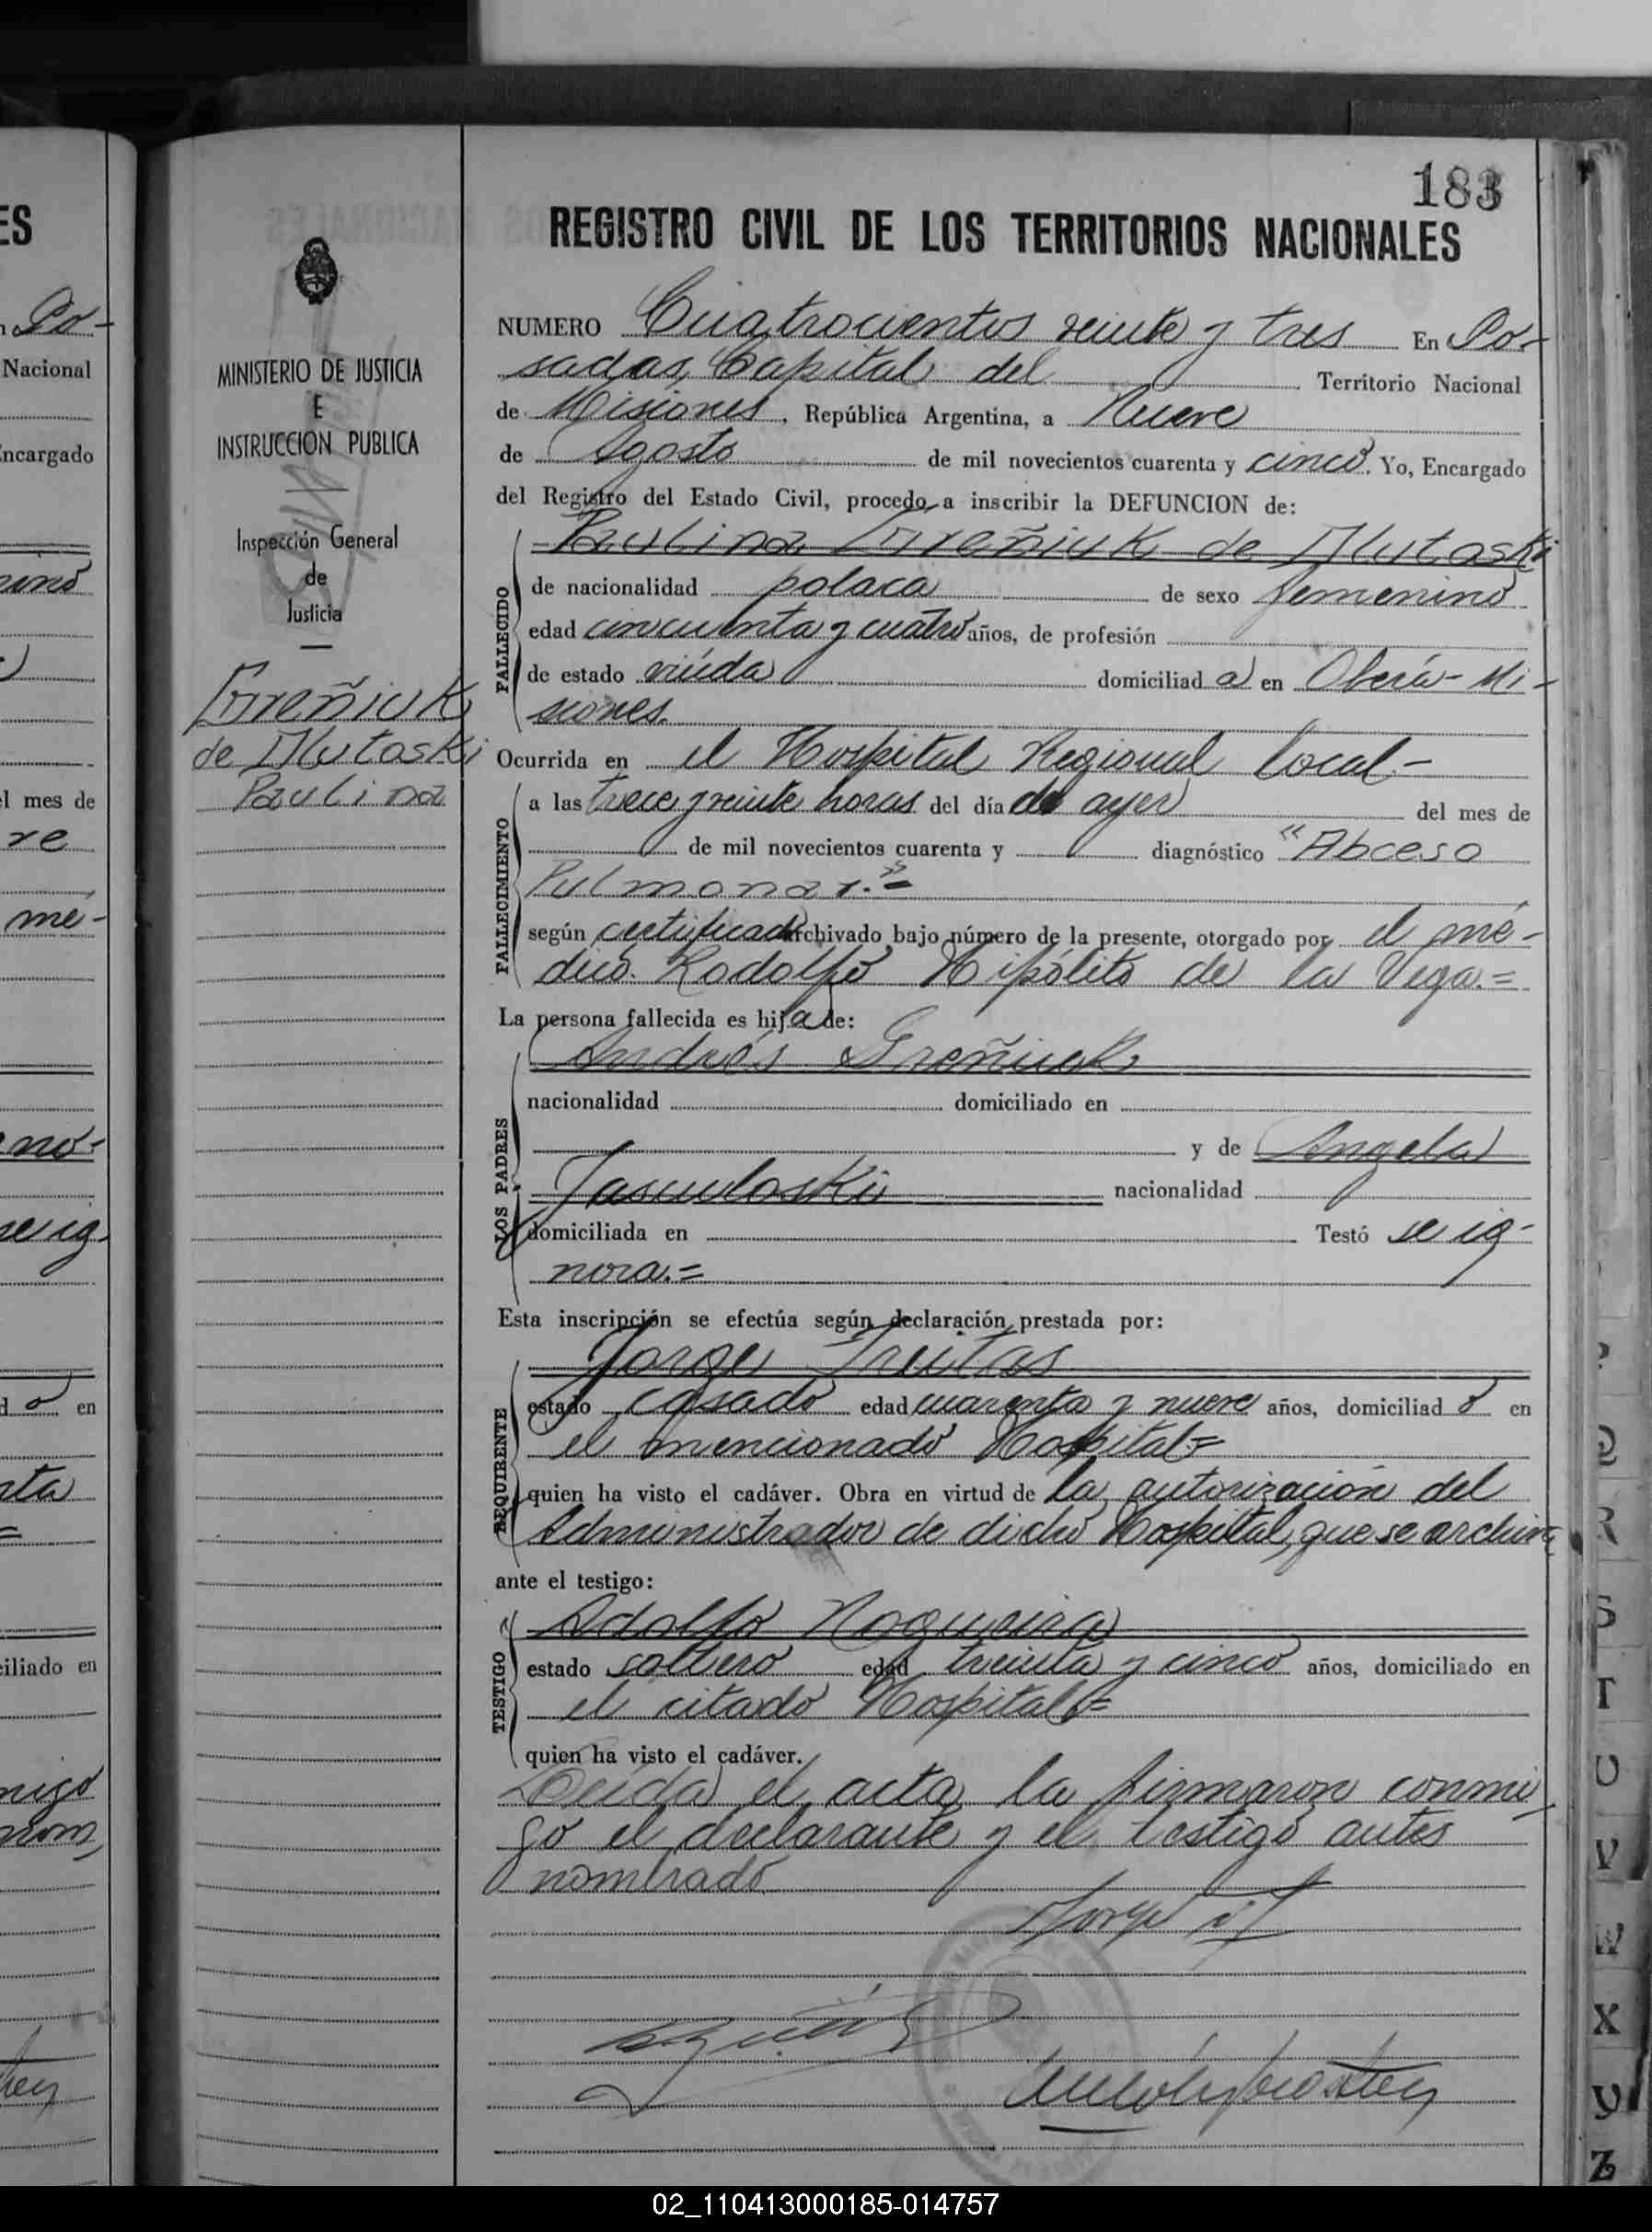 183
REGISTRO CIVIL DE LOS TERRITORIOS NACIONALES
MINISTERIO DE JUSTICIA
E
INSTRUCCION PUBLICA
Inspección General
de
Justicia
Greñiuk
de Mutaski
Paulina
NUMERO Cuatrocientos veinte y tres En Po-
sadas, Capital del Territorio Nacional
de Misiones, República Argentina, a Nueve
de Agosto de mil novecientos cuarenta y cinco. Yo, Encargado
del Registro del Estado Civil, procedo a inscribir la DEFUNCION de:
Paulina Greñiuk de Mutaski
FALLECIDO
de nacionalidad polaca de sexo femenino
edad cincuenta y cuatro años, de profesión
de estado viuda domiciliad a en Oberá- Mi-
siones.
Ocurrida en el Hospital Regional local.-
FALLECIMIENTO
a las trece y veinte horas del día de ayer del mes de
de mil novecientos cuarenta y diagnóstico "Abceso
Pulmonar."=
según certificado archivado bajo número de la presente, otorgado por el mé-
dico Rodolfo Hipólito de la Vega.=
La persona fallecida es hija de:
LOS PADRES
Andrés Greñiuk
nacionalidad domiciliado en
y de Angela
nacionalidad
domiciliada en Testó se ig-
nora.=
Esta inscripción se efectúa según declaración prestada por:
REQUIRENTE
Jorge Freitas
estado casado edad cuarenta y nueve años, domiciliad o en
el mencionado Hospital=
quien ha visto el cadáver. Obra en virtud de la autorización del
Administrador de dicho Hospital, que se archiva
ante el testigo:
TESTIGO
Adolfo Nogueira
estado soltero edad treinta y cinco años, domiciliado en
el citado Hospital=
quien ha visto el cadáver.
Leída el acta, la firmaron conmi-
go el declarante y el testigo antes
nombrado
02_110413000185-014757